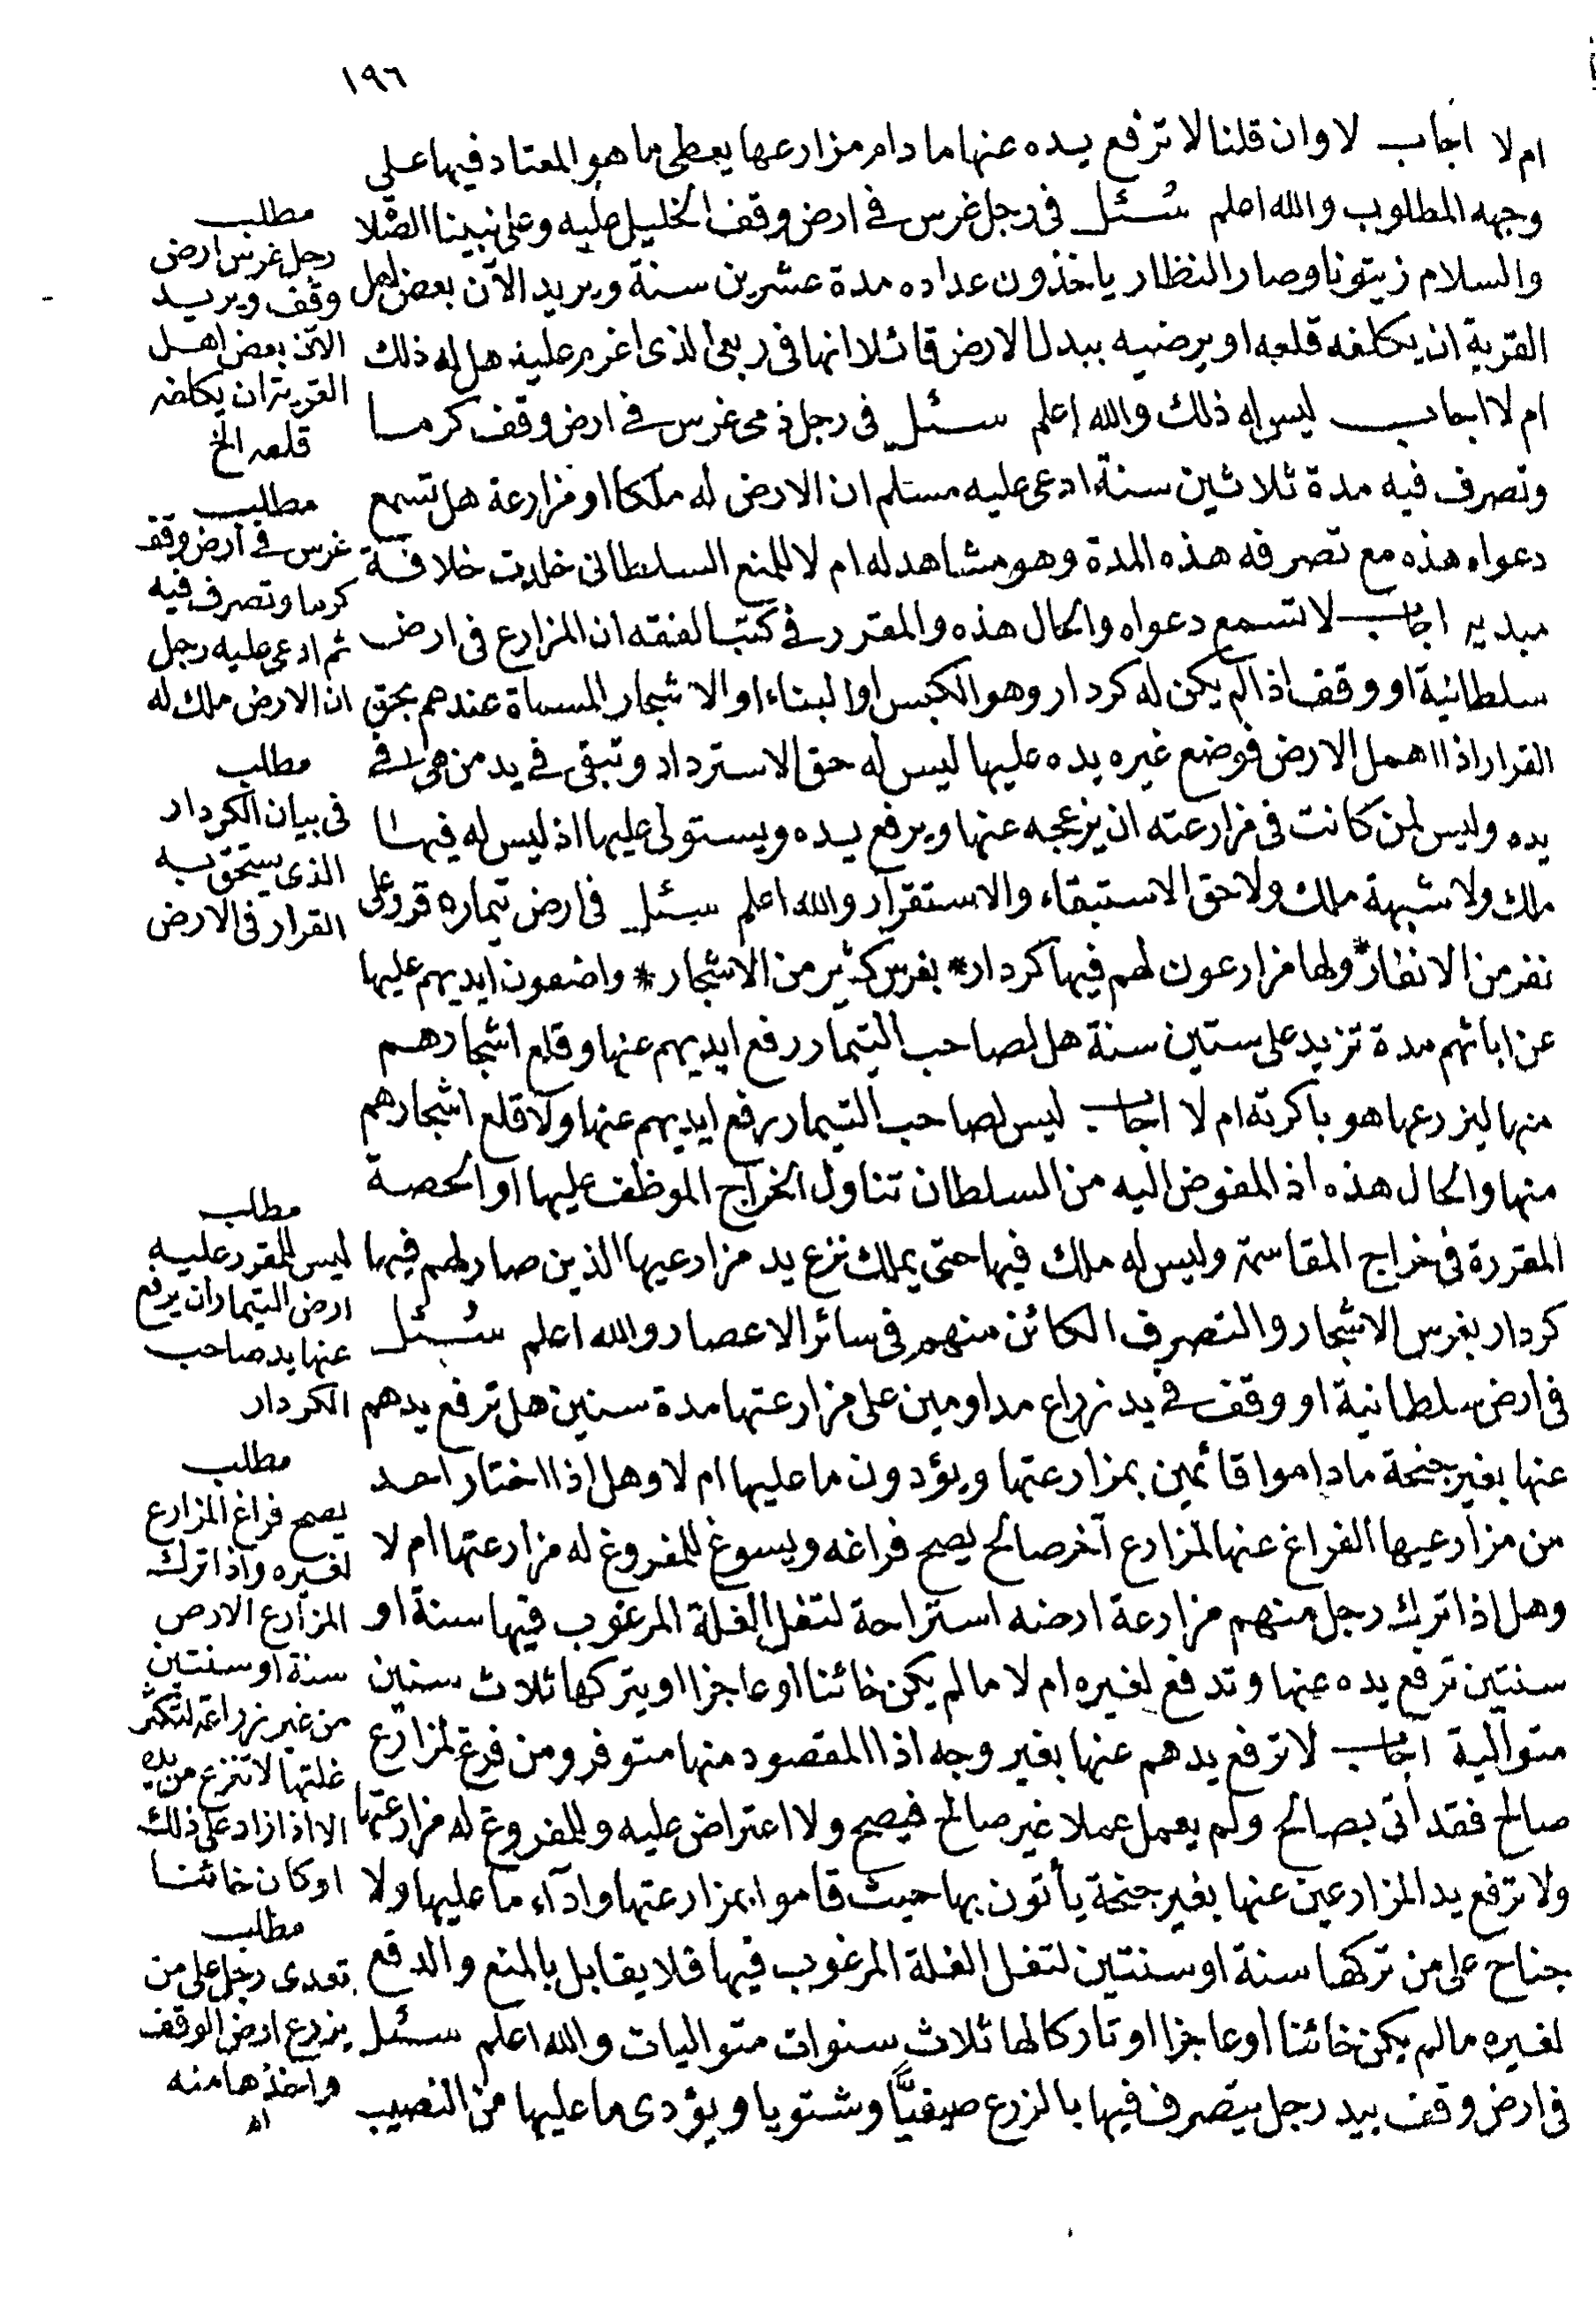 ١٩٦
ام لا اجاب لا وان قلنا لا ترفع يده عنها ما دام مزارعها يعطى ما هو المعتاد فيها على
وجهه المطلوب والله اعلم سئل فى رجل غرس فى ارض وقف الخليل عليه وعلى نبينا الصلا
والسلام زيتونا وصار النظار ياخذون عداده مدة عشرين سنة ويريد الآن بعض اهل
القرية ان يكلفه قلعه او يرضيه ببدل الارض قائلا انها فى ربعى الذى اغرم عليه هل له ذلك
ام لا اجاب ليس له ذلك والله اعلم سئل فى رجل ذمى غرس فى ارض وقف كرما
وتصرف فيه مدة ثلاثين سنة ادعى عليه مسلم ان الارض له ملكا او مزارعة هل تسمع
دعواه هذه مع تصرفه هذه المدة وهو مشاهد له ام لا للمنع السلطانى خلدت خلافة
مبديه اجاب لا تسمع دعواه والحال هذه والمقرر فى كتب الفقه ان المزارع فى ارض
سلطانية او وقف اذا لم يكن له كردار وهو الكبس او البناء او الاشجار المسماة عندهم بحق
القرار اذا اهمل الارض فوضع غيره يده عليها ليس له حق الاسترداد وتبقى فى يد من هى فى
يده وليس لمن كانت فى مزارعته ان يزعجه عنها ويرفع يده ويستولى عليها اذ ليس له فيها
ملك ولا شبهة ملك ولا حق الاستبقاء والاستقرار والله اعلم سئل فى ارض تيماره قرر على
نفر من الانفار* ولها مزارعون لهم فيها كردار* بغرس كثير من الاشجار* واضعون ايديهم عليها
عن ابائهم مدة تزيد على ستين سنة هل لصاحب التيمار رفع ايديهم عنها وقلع اشجارهم
منها ليزرعها هو باكرته ام لا اجاب ليس لصاحب التيمار رفع ايديهم عنها ولا قلع اشجارهم
منها والحال هذه اذ المفوض اليه من السلطان تناول الخراج الموظف عليها او الحصة
المقررة فى خراج المقاسمة وليس له ملك فيها حتى يملك نزع يد مزارعيها الذين صار لهم فيها
كردار بغرس الاشجار والتصرف الكائن منهم فى سائر الاعصار والله اعلم سئل
فى ارض سلطانية او وقف فى يد زراع مداومين على مزارعتها مدة سنين هل ترفع يدهم
عنها بغير جنحة ما داموا قائمين بمزارعتها ويؤدون ما عليها ام لا وهل اذا اختار احد
من مزارعيها الفراغ عنها لمزارع آخر صالح يصح فراغه ويسوغ للمفروغ له مزارعتها ام لا
وهل اذا ترك رجل منهم مزارعة ارضه استراحة لتغل الغلة المرغوب فيها سنة او
سنتين ترفع يده عنها وتدفع لغيره ام لا ما لم يكن خائنا او عاجزا او يتركها ثلاث سنين
متوالية اجاب لا ترفع يدهم عنها بغير وجه اذا المقصود منها متوفر ومن فرغ لمزارع
صالح فقد أتى بصالح ولم يعمل عملا غير صالح فيصح ولا اعتراض عليه وللمفروغ له مزارعتها
ولا ترفع يد المزارعين عنها بغير جنحة يأتون بها حيث قاموا بمزارعتها وادآء ما عليها ولا
جناح على من تركها سنة او سنتين لتغل الغلة المرغوب فيها فلا يقابل بالمنع والدفع
لغيره ما لم يكن خائنا او عاجزا او تاركا لها ثلاث سنوات متواليات والله اعلم سئل
فى ارض وقف بيد رجل يتصرف فيها بالزرع صيفيًّا وشتويا ويؤدى ما عليها من النصيب
مطلب
رجل غرس ارض
وقف ويريد
الآن بعض اهل
القرية ان يكلفه
قلعه الخ
مطلب
غرس فى ارض وقف
كرما وتصرف فيه
ثم ادعى عليه رجل
ان الارض ملك له
مطلب
فى بيان الكردار
الذى يستحق به
القرار فى الارض
مطلب
ليس للمقرر عليه
ارض التيمار ان يرفع
عنها يد صاحب
الكردار
مطلب
يصح فراغ المزارع
لغيره واذا ترك
المزارع الارض
سنة او سنتين
من غير زراعة لتكثر
غلتها لا تنزع من يده
الا اذا زاد على ذلك
او كان خائنا
مطلب
تعدى رجل على من
يزرع ارض الوقف
واخذها منه
اه